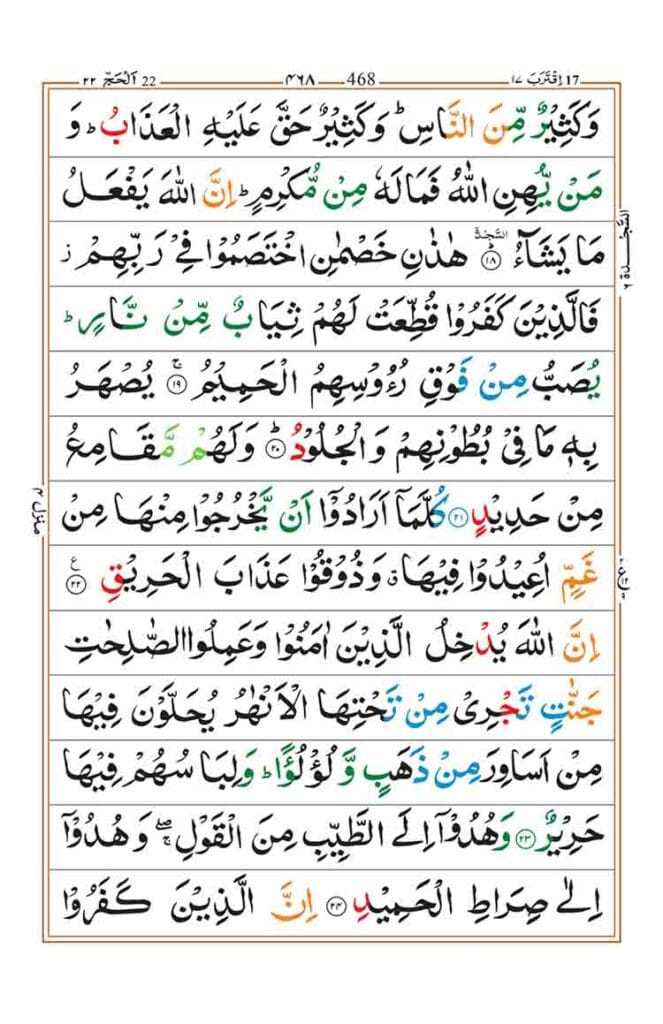 اِقْتَرَبَ ١٧ 17 ٤٦٨ 468 اَلْحَجّ ٢٢ 22
وَكَثِيْرٌ مِّنَ النَّاسِ ؕ وَكَثِيْرٌ حَقَّ عَلَيْهِ الْعَذَابُ ؕ وَ
مَنْ يُّهِنِ اللّٰهُ فَمَا لَهٗ مِنْ مُّكْرِمٍ ؕ اِنَّ اللّٰهَ يَفْعَلُ
مَا يَشَآءُ ۩ ﴿۱۸﴾ هٰذٰنِ خَصْمٰنِ اخْتَصَمُوْا فِيْ رَبِّهِمْ ز
السَّجْدَة
السَّجْدَة ٦
فَالَّذِيْنَ كَفَرُوْا قُطِّعَتْ لَهُمْ ثِيَابٌ مِّنْ نَّارٍ ؕ
يُصَبُّ مِنْ فَوْقِ رُءُوْسِهِمُ الْحَمِيْمُ ۚ ﴿۱۹﴾ يُصْهَرُ
بِهٖ مَا فِيْ بُطُوْنِهِمْ وَالْجُلُوْدُ ؕ ﴿۲۰﴾ وَلَهُمْ مَّقَامِعُ
مِنْ حَدِيْدٍ ﴿۲۱﴾ كُلَّمَاۤ اَرَادُوْۤا اَنْ يَّخْرُجُوْا مِنْهَا مِنْ
منزل ٤
غَمٍّ اُعِيْدُوْا فِيْهَا ۗ وَذُوْقُوْا عَذَابَ الْحَرِيْقِ ﴿۲۲﴾ ع
اِنَّ اللّٰهَ يُدْخِلُ الَّذِيْنَ اٰمَنُوْا وَعَمِلُوا الصّٰلِحٰتِ
جَنّٰتٍ تَجْرِيْ مِنْ تَحْتِهَا الْاَنْهٰرُ يُحَلَّوْنَ فِيْهَا
مِنْ اَسَاوِرَ مِنْ ذَهَبٍ وَّلُؤْلُؤًا ؕ وَلِبَاسُهُمْ فِيْهَا
حَرِيْرٌ ﴿۲۳﴾ وَهُدُوْۤا اِلَى الطَّيِّبِ مِنَ الْقَوْلِ ۖۚ وَهُدُوْۤا
اِلٰى صِرَاطِ الْحَمِيْدِ ﴿۲۴﴾ اِنَّ الَّذِيْنَ كَفَرُوْا